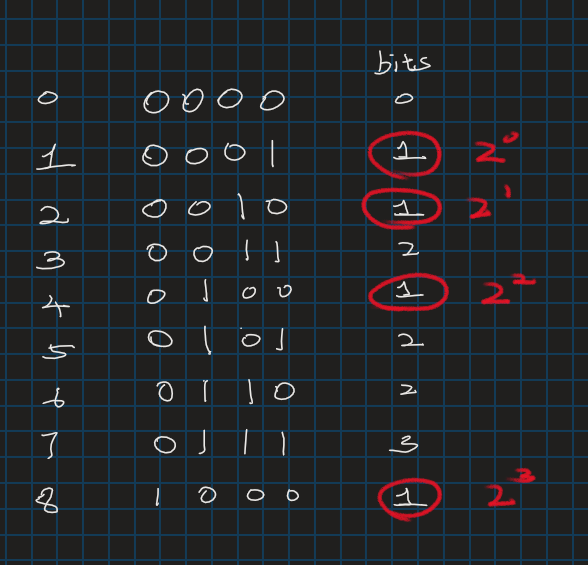 bits
0 0000 0
1 0001 1 2⁰
2 0010 1 2¹
3 0011 2
4 0100 1 2²
5 0101 2
6 0110 2
7 0111 3
8 1000 1 2³